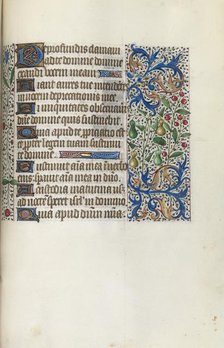 De profundis clamavi
ad te domine domine
exaudi vocem meam
Fiant aures tue intendentes
in vocem deprecationis mee
Si iniquitates observaveris
domine domine quis sustinebit
Quia apud te propiciatio est
et propter legem tuam sustinui
te domine
Sustinuit aīa mea in verbo
eius speravit aīa mea in dno
A custodia matutina us
ad noctem speret isrl in domino
Quia apud dnm mīa